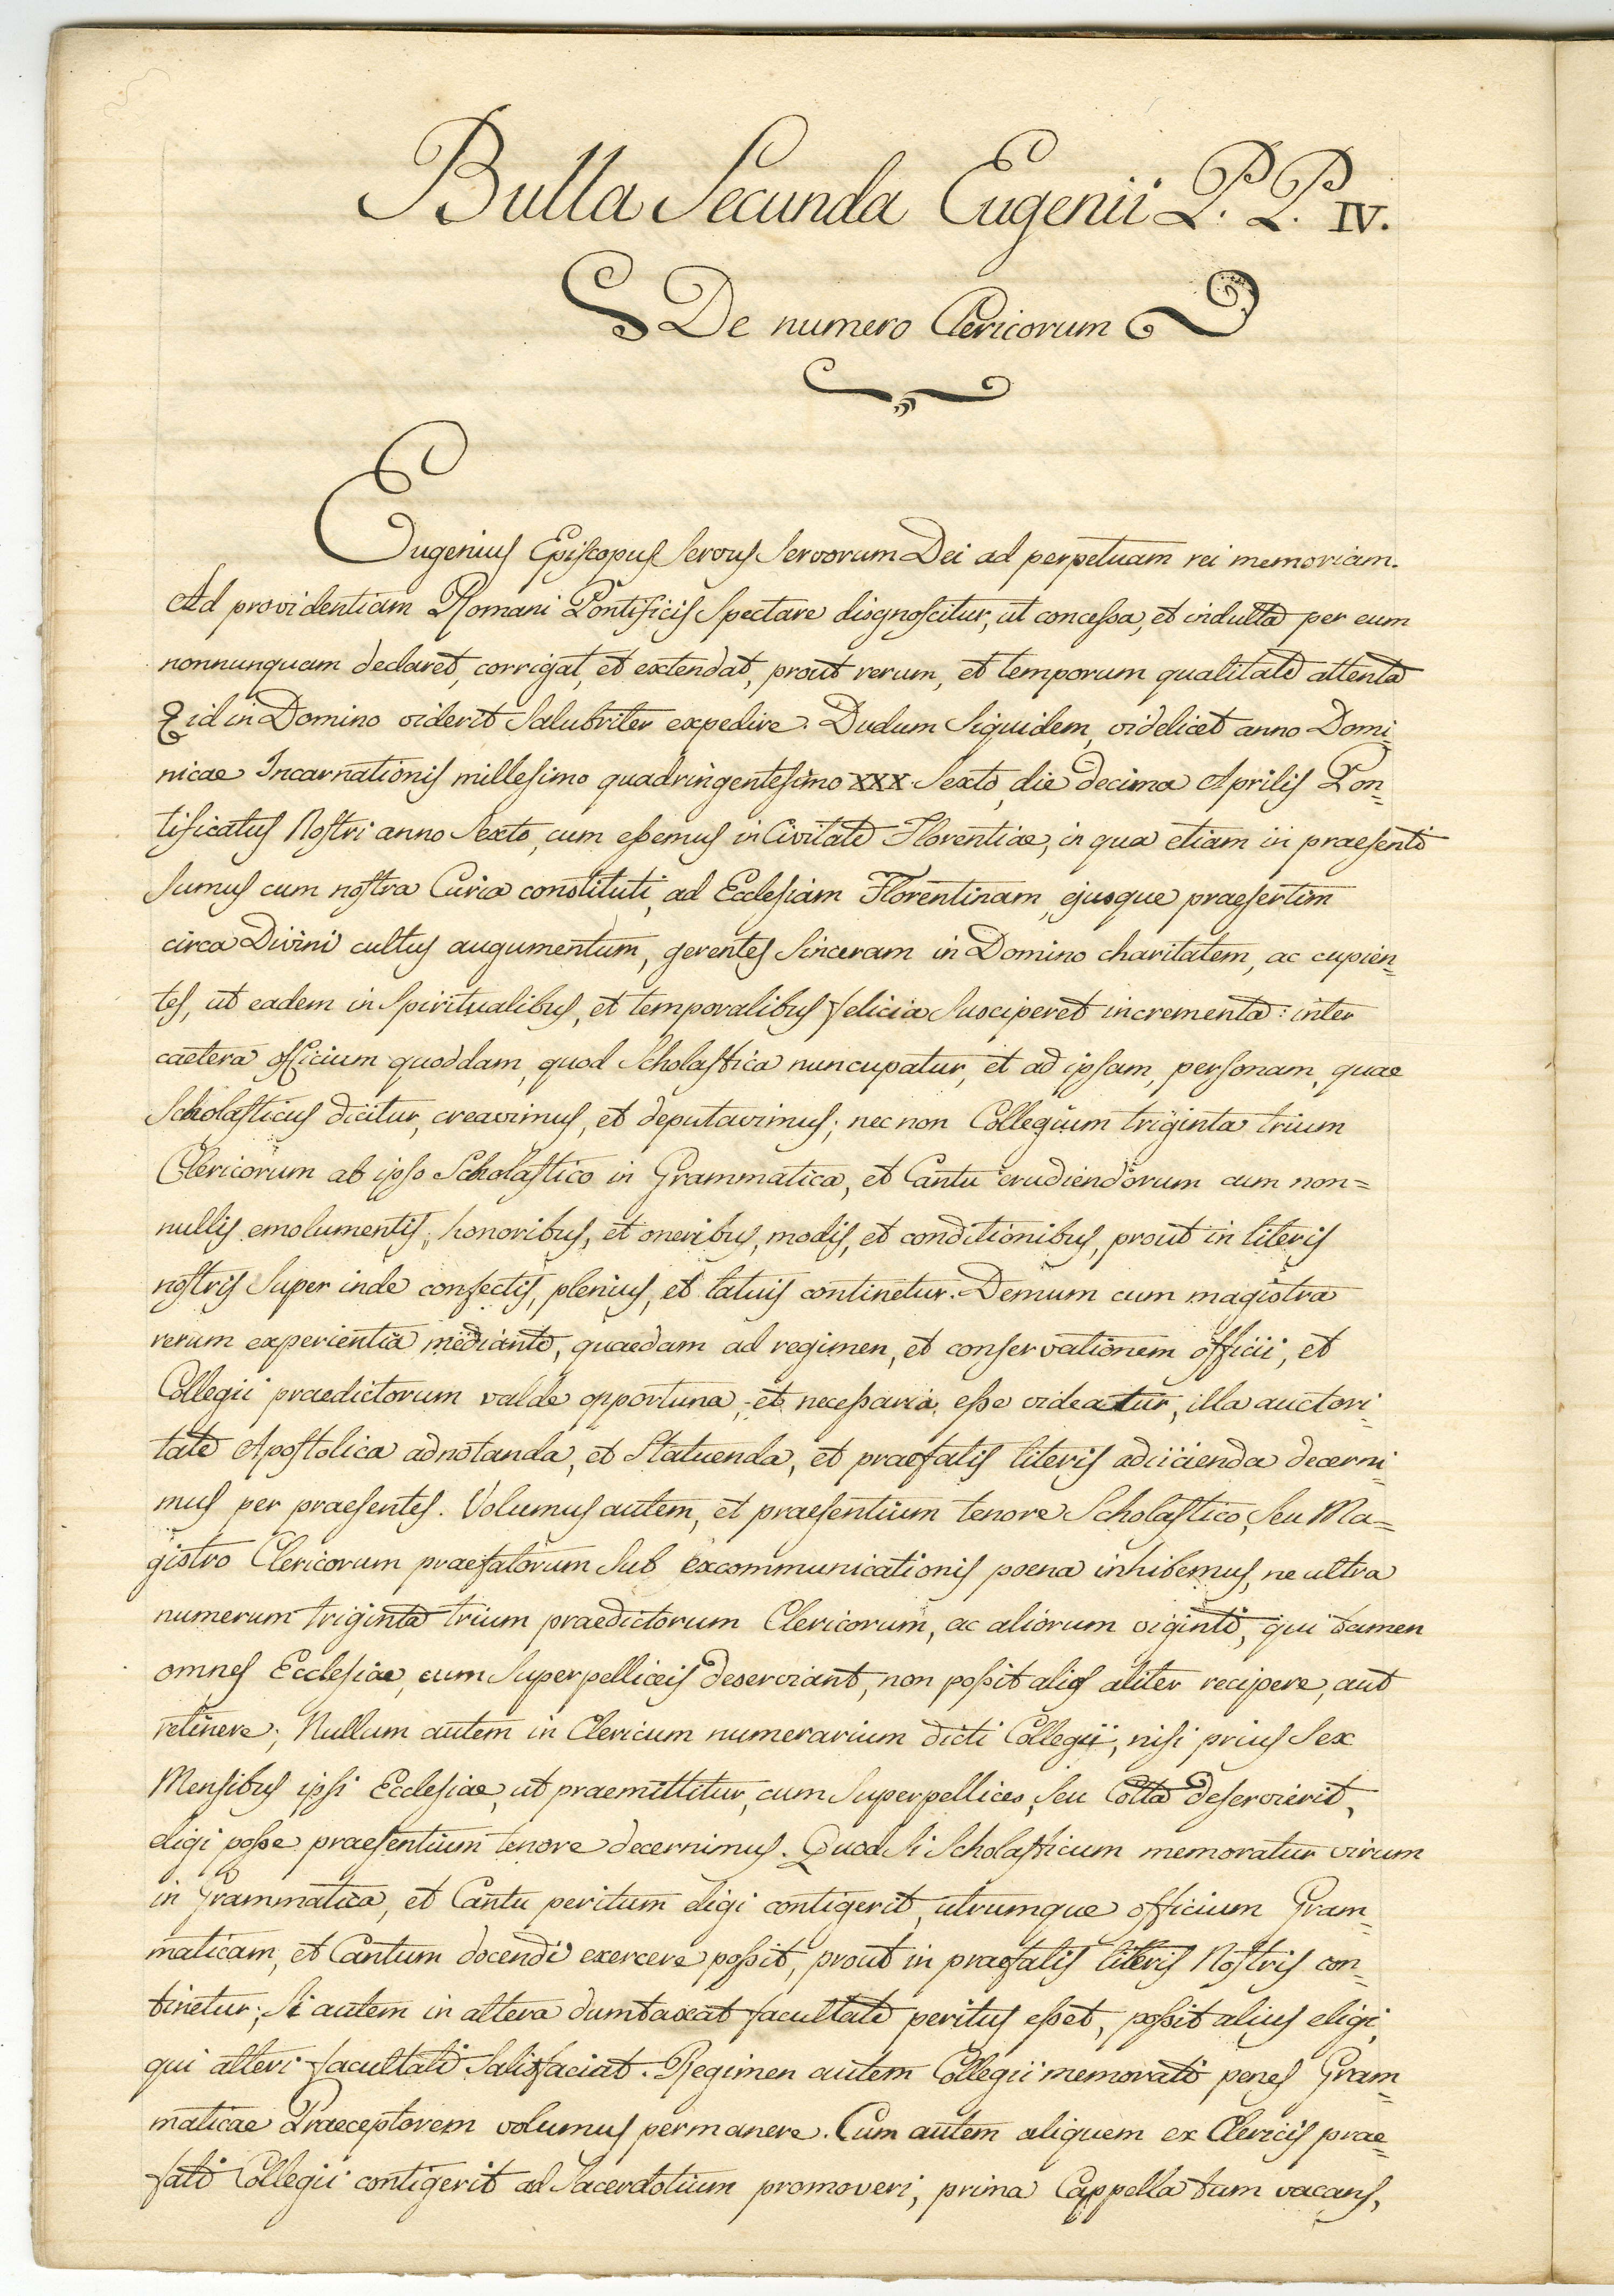 Bulla Secunda Eugenii P. P. IV.
De numero Clericorum
Eugenius Episcopus Servus Servorum Dei ad perpetuam rei memoriam.
Ad providentiam Romani Pontificis Spectare disgnoscitur, ut concessa, et indulta per eum
nonnunquam declaret, corrigat, et extendat, prout rerum, et temporum qualitate attenta
id in Domino viderit Salubriter expedire. Dudum Siquidem, videlicet anno Domi
nicae Incarnationis millesimo quadringentesimo xxx Sexto, die decima Aprilis Pon=
tificatus Nostri anno Sexto, cum essemus in Civitate Florentiae, in qua etiam in praesenti
Sumus cum nostra Curia constituti, ad Ecclesiam Florentinam, ejusque praesertim
circa Divini cultus augumentum, gerentes Sinceram in Domino charitatem, ac cupien=
tes, ut eadem in Spiritualibus, et temporalibus felicia Susciperet incrementa: inter
caetera officium quoddam, quod Scholastica nuncupatur, et ad ipsam, personam, quae
Scholasticus dicitur, creavimus, et deputavimus; nec non Collegium triginta trium
Clericorum ab ipso Scholastico in Grammatica, et Cantu erudiendorum cum non=
nullis emolumentis, honoribus, et oneribus, modis, et conditionibus, prout in literis
nostris Super inde confectis, plenius, et latuis continetur. Demum cum magistra
rerum experientia mediante, quaedam ad regimen, et conservationem officii, et
Collegii praedictorum valde opportuna, et necessaria esse videatur, illa auctori
tate Apostolica adnotanda, et Statuenda, et praefatis literis adiicienda decerni
mus per praesentes. Volumus autem, et praesentium tenore Scholastico, Seu Ma=
gistro Clericorum praefatorum Sub excommunicationis poena inhibemus, ne ultra
numerum triginta trium praedictorum Clericorum, ac aliorum viginti, qui tamen
omnes Ecclesiae, cum Superpelliceis deserviant, non possit alios aliter recipere, aut
retinere; Nullum autem in Clericum numerarium dicti Collegii, nisi prius Sex
Mensibus ipsi Ecclesiae, ut praemittitur, cum Superpelliceo, Seu Cotta deservierit,
eligi posse praesentium tenore decernimus. Quod Si Scholasticum memoratur virum
in Grammatica, et Cantu peritum eligi contigerit, utrumque officium Gram=
maticam, et Cantum docendi exercere possit, prout in praefatis literis Nostris con=
tinetur; Si autem in altera dumtaxat facultate peritus esset, possit alius eligi,
qui alteri facultati Satisfaciat. Regimen autem Collegii memorati penes Gram=
maticae Praeceptorem volumus permanere. Cum autem aliquem ex Clericis prae=
fati Collegii contigerit ad Sacerdotium promoveri, prima Cappella tum vacans,